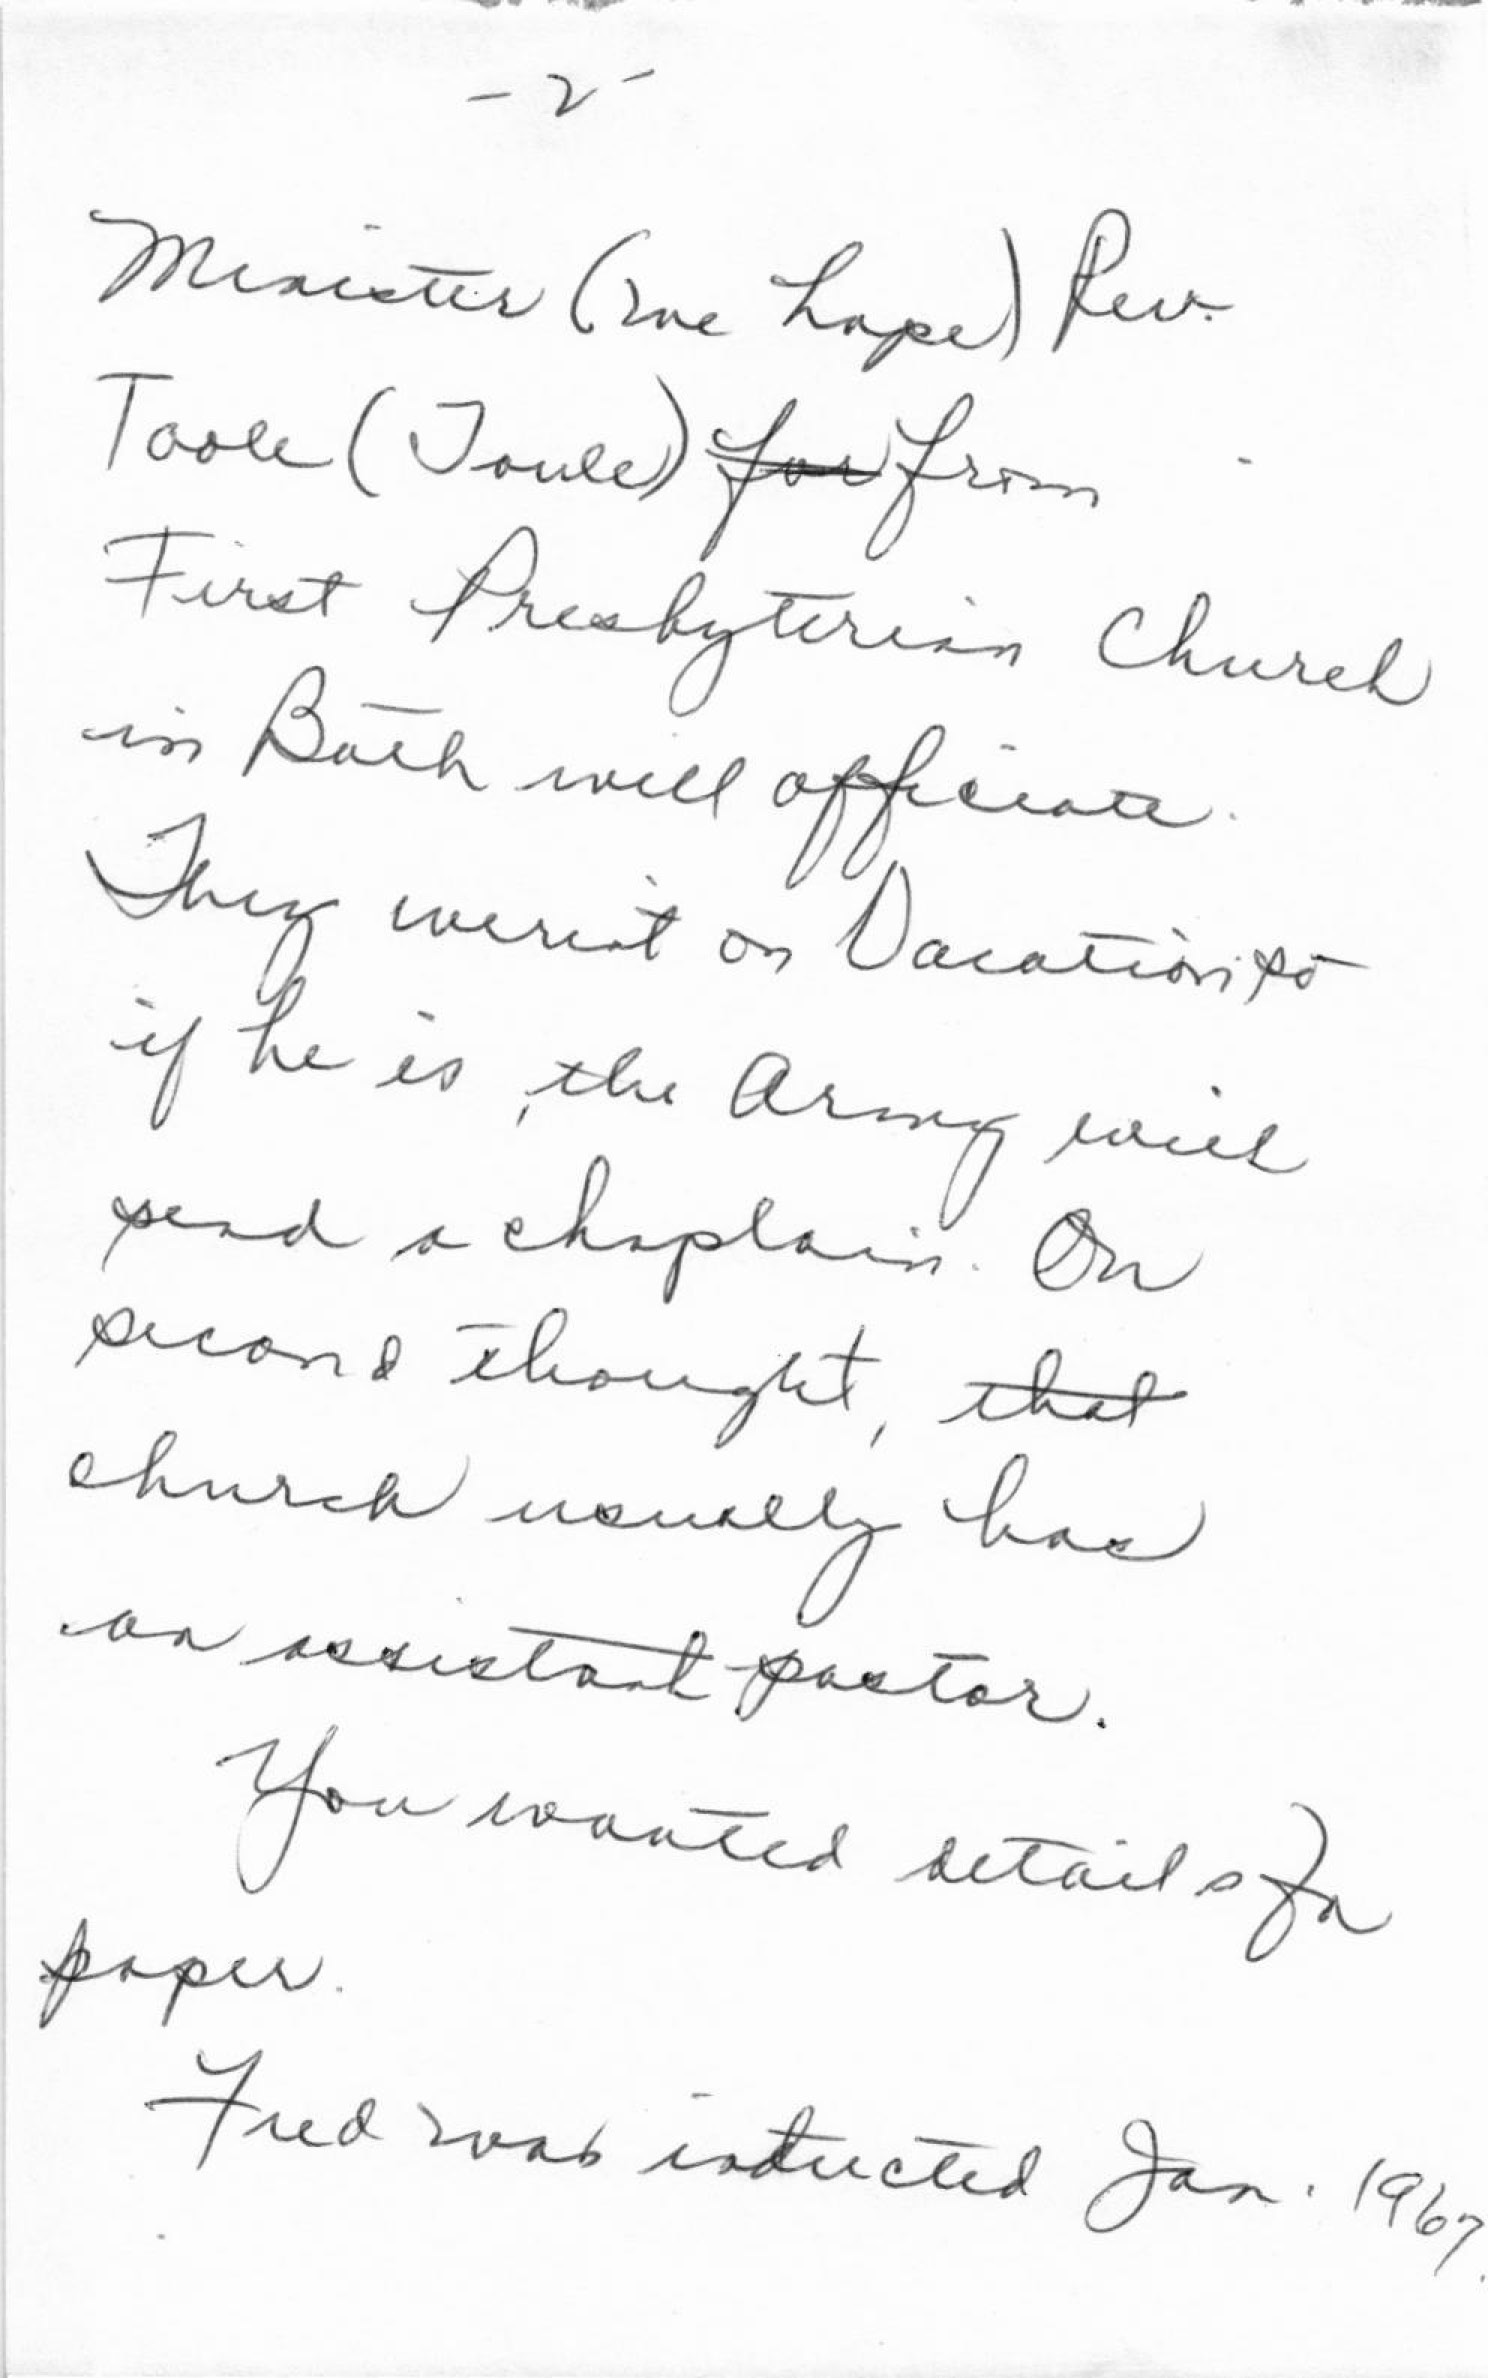 - 2 -
Minister (we hope) Rev.
Toole (Toule) for from
First Presbyterian Church
in Bath will officiate.
They weren't on Vacation so
if he is, the Army will
send a chaplain. On
second thought, that
church usually has
an assistant pastor.
You wanted details for
paper.
Fred was inducted Jan. 1967.